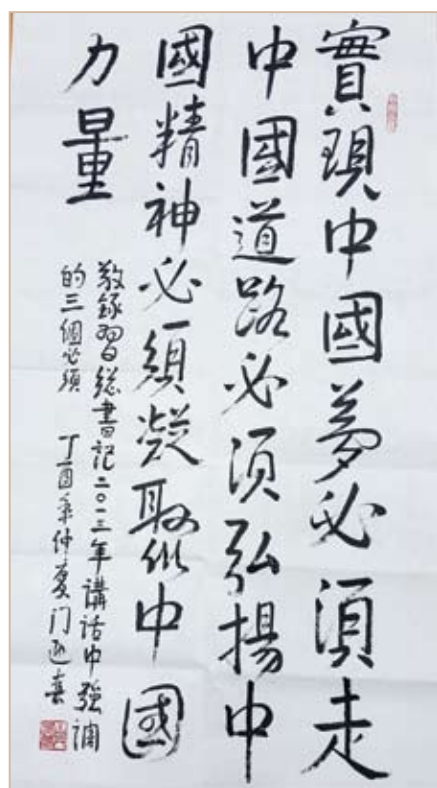 實現中國夢必須走
中國道路必須弘揚中
國精神必須凝聚中國
力量
敬錄習總書記二〇一三年講話中強調
的三個必須 丁酉年仲夏门迎喜